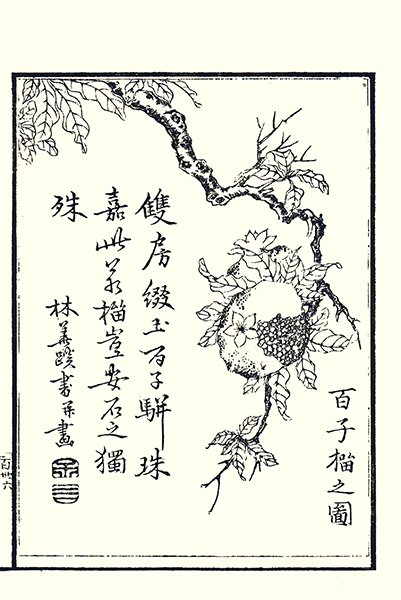 百子榴之圖
雙房綴玉百子駢珠
嘉此若榴豈安石之獨
殊
林書并畫
百卅六